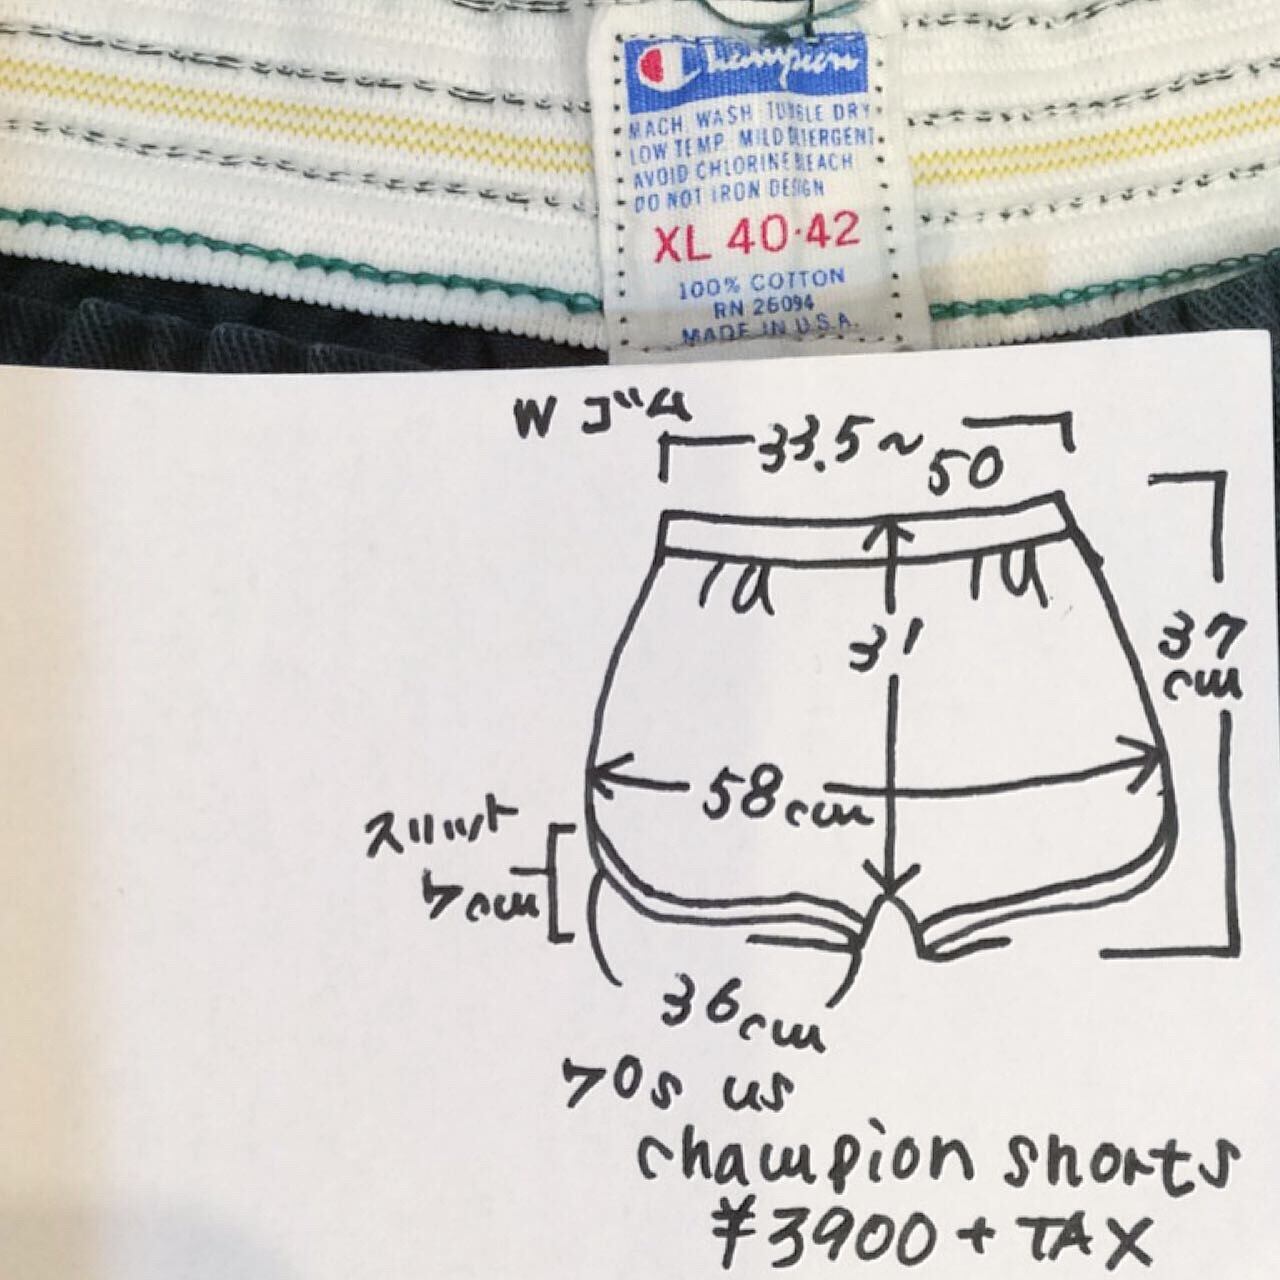 Champion
MACH. WASH TUMBLE DRY
LOW TEMP. MILD DETERGENT
AVOID CHLORINE BLEACH
DO NOT IRON DESIGN
XL 40·42
100% COTTON
RN 26094
MADE IN U.S.A.
W ゴム
33.5~50
31
37cm
58cm
スリット
7cm
36cm
70s us
champion shorts
¥3900+TAX